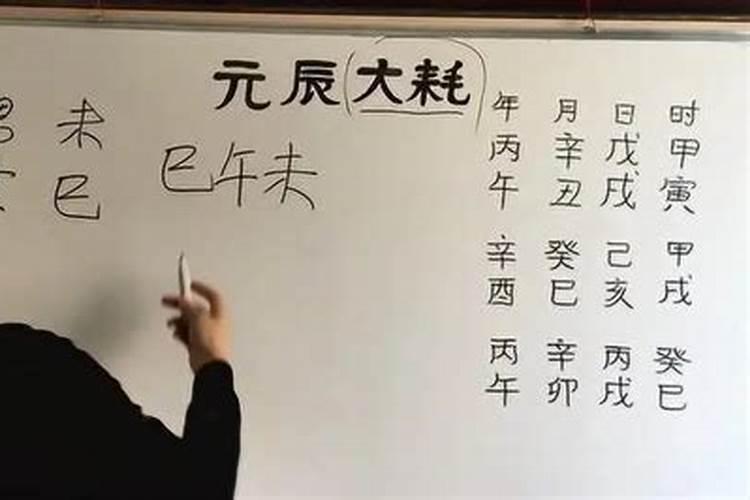 元辰(大耗)
未
巳
巳午未
年 月 日 时
丙 辛 戊 甲
午 丑 戌 寅
辛 癸 己 甲
酉 巳 亥 戌
丙 辛 丙 癸
午 卯 戌 巳